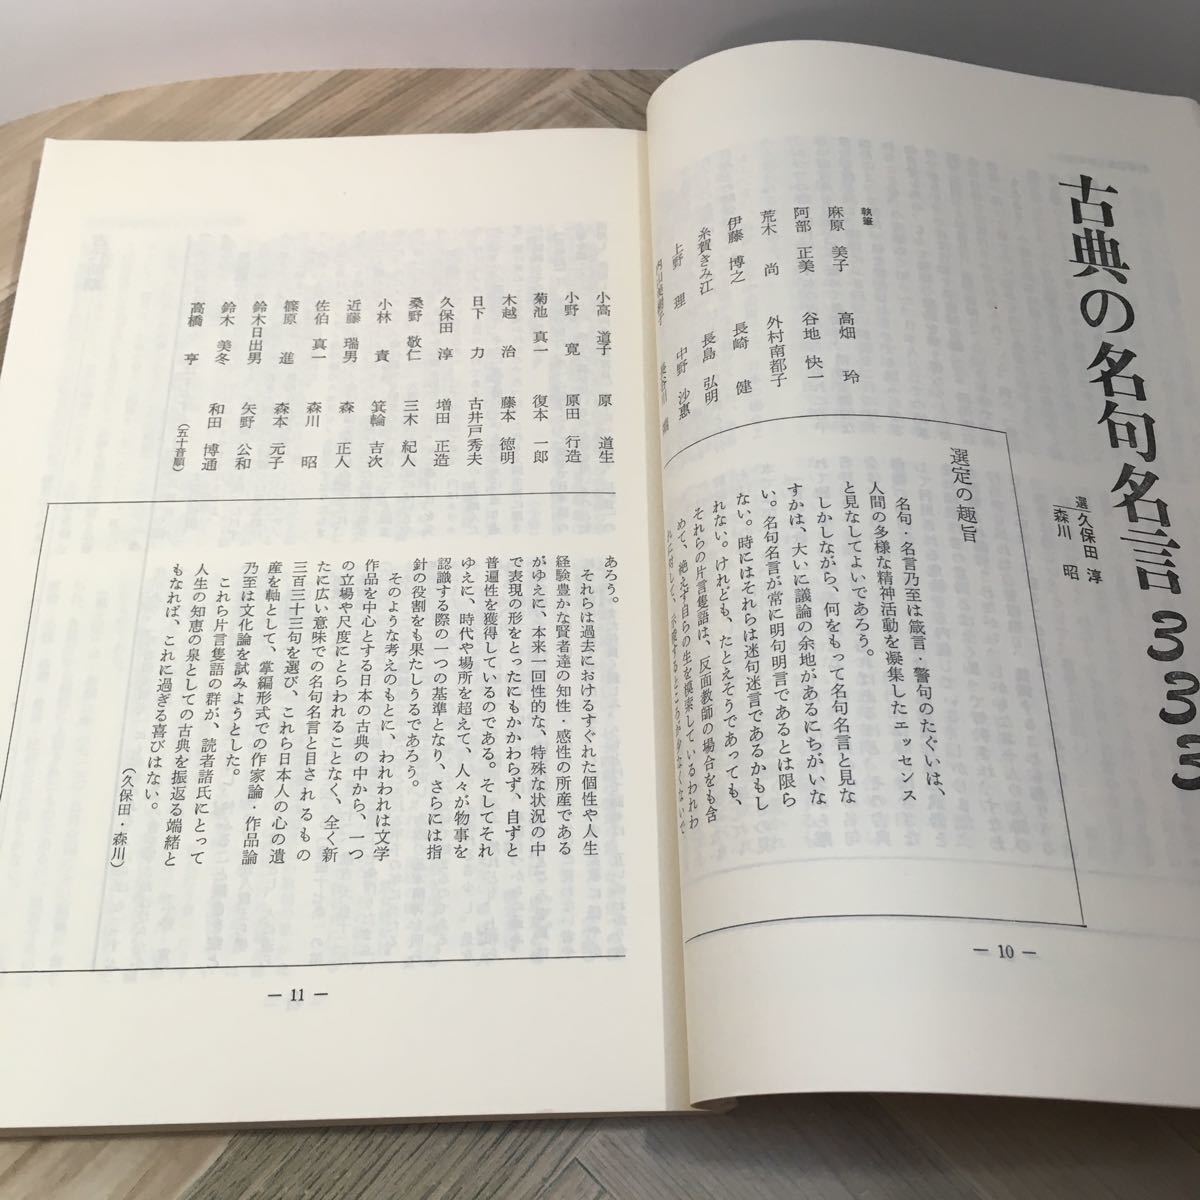 古典の名句名言333
選 久保田 淳
森川 昭
執筆
麻原 美子
阿部 正美
荒木 尚
伊藤 博之
糸賀きみ江
上野 理
高畑 玲
谷地 快一
外村南都子
長崎 健
長島 弘明
中野 沙惠
選定の趣旨
名句・名言乃至は箴言・警句のたぐいは、
人間の多様な精神活動を凝集したエッセンス
と見なしてよいであろう。
しかしながら、何をもって名句名言と見な
すかは、大いに議論の余地があるにちがいな
い。名句名言が常に明句明言であるとは限ら
ない。時にはそれらは迷句迷言であるかもし
れない。けれども、たとえそうであっても、
それらの片言隻語は、反面教師の場合をも含
めて、絶えず自らの生を模索しているわれわ
れに対して、示唆するところが少なくないで
— 10 —
小高 道子
小野 寛
菊池 真一
木越 治
日下 力
久保田 淳
桑野 敬仁
小林 責
近藤 瑞男
佐伯 真一
篠原 進
鈴木日出男
鈴木 美冬
高橋 亨
原 道生
原田 行造
復本 一郎
藤本 徳明
古井戸秀夫
増田 正造
三木 紀人
箕輪 吉次
森 正人
森川 昭
森本 元子
矢野 公和
和田 博通
(五十音順)
あろう。
それらは過去におけるすぐれた個性や人生
経験豊かな賢者達の知性・感性の所産である
がゆえに、本来一回性的な、特殊な状況の中
で表現の形をとったにもかかわらず、自ずと
普遍性を獲得しているのである。そしてそれ
ゆえに、時代や場所を超えて、人々が物事を
認識する際の一つの基準となり、さらには指
針の役割をも果たしうるであろう。
そのような考えのもとに、われわれは文学
作品を中心とする日本の古典の中から、一つ
の立場や尺度にとらわれることなく、全く新
たに広い意味での名句名言と目されるもの
三百三十三句を選び、これら日本人の心の遺
産を軸として、掌編形式での作家論・作品論
乃至は文化論を試みようとした。
これら片言隻語の群が、読者諸氏にとって
人生の知恵の泉としての古典を振返る端緒と
もなれば、これに過ぎる喜びはない。
(久保田・森川)
— 11 —